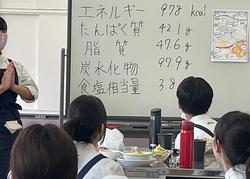 エネルギー 978 kcal
たんぱく質 42.1g
脂質 47.6g
炭水化物 97.9g
食塩相当量 3.8